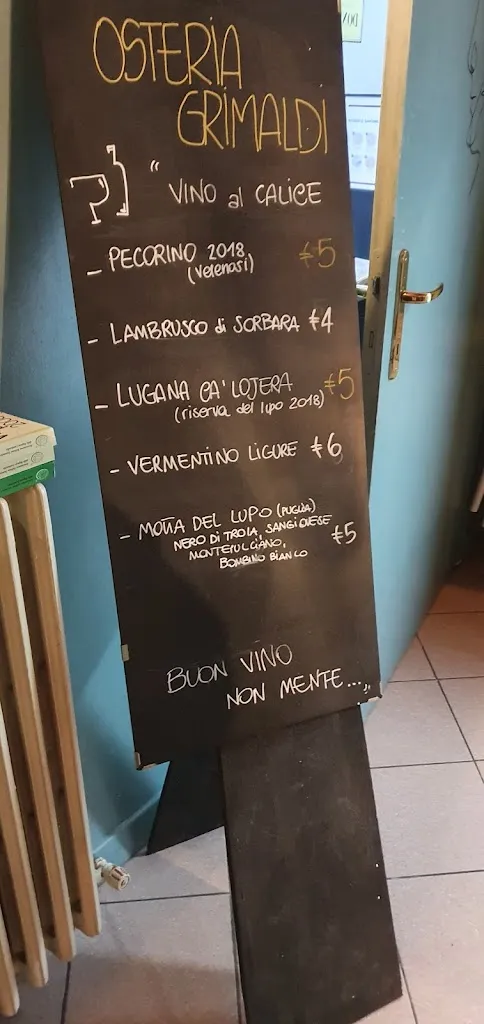 OSTERIA
GRIMALDI
" VINO al CALICE
- PECORINO 2018 €5
(Velenosi)
- LAMBRUSCO di SORBARA €4
- LUGANA CA' LOJERA €5
(riserva del lupo 2018)
- VERMENTINO LIGURE €6
- MOTTA DEL LUPO (PUGLIA)
NERO DI TROIA, SANGIOVESE €5
MONTEPULCIANO,
BOMBINO BIANCO
BUON VINO
NON MENTE...,,